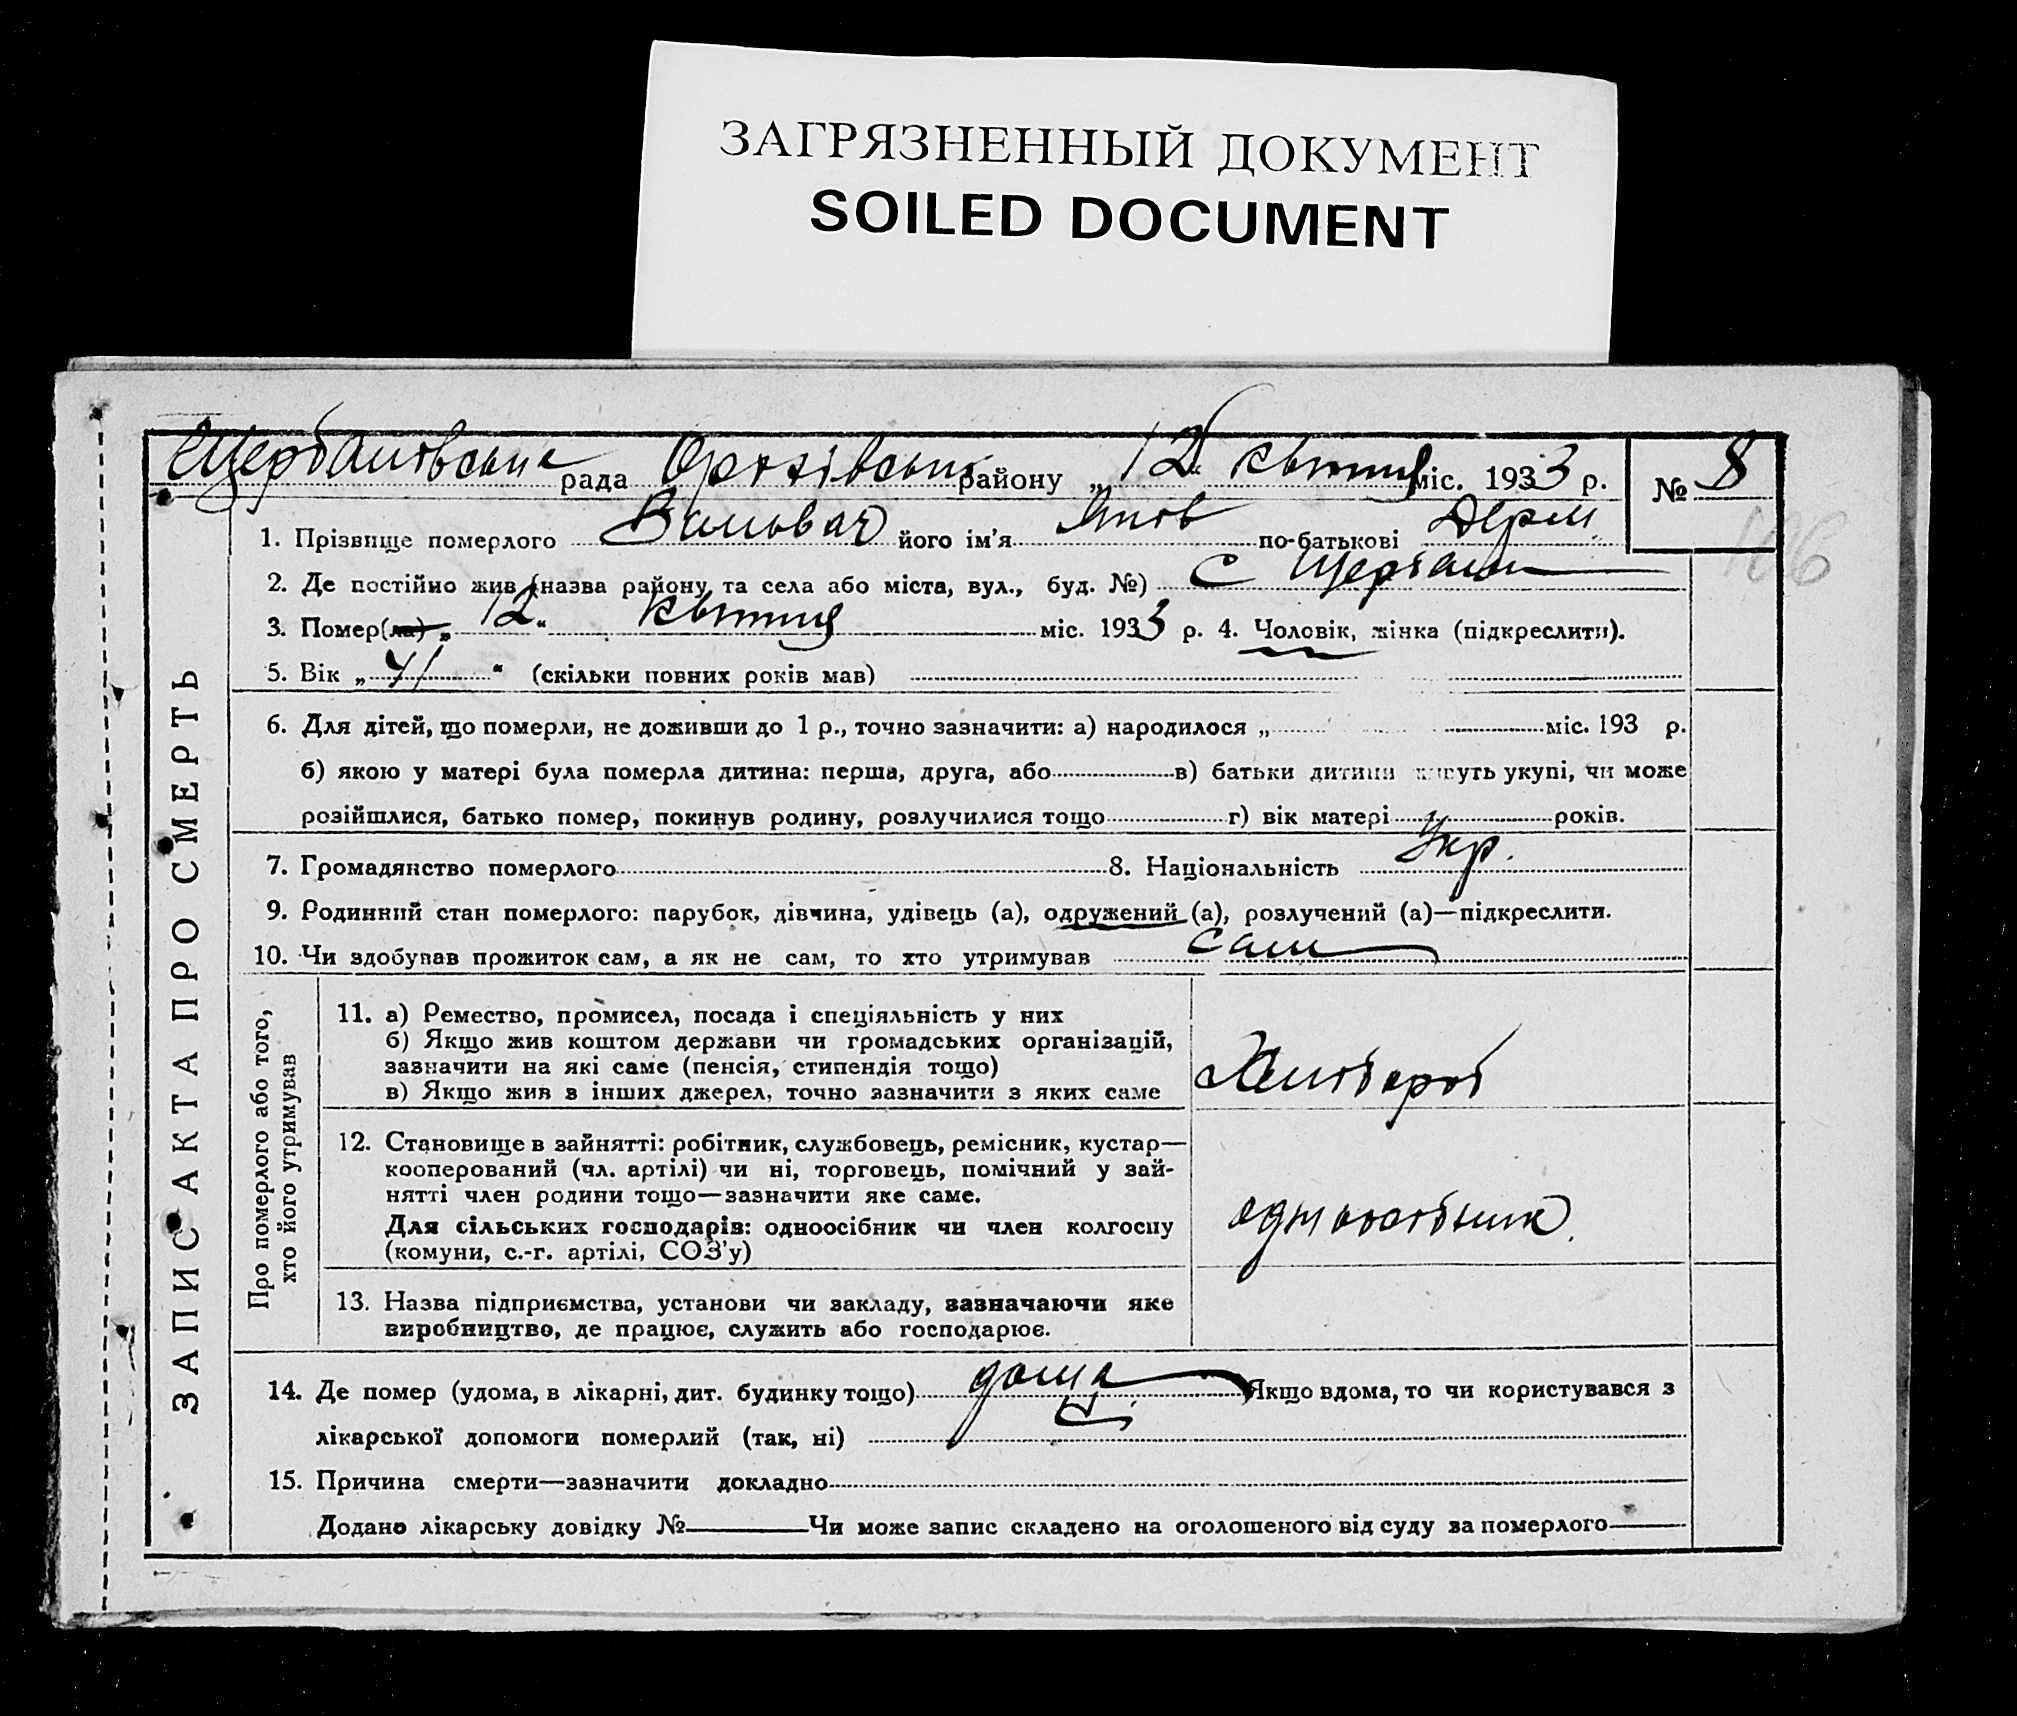 ЗАГРЯЗНЕННЫЙ ДОКУМЕНТ
SOILED DOCUMENT
Щербанівська рада Оріхівськ району „ 12 " квітня міс. 1933 р. № 8
106
1. Прізвище померлого його ім'я Яков по-батькові
2. Де постійно жив (назва району та села або міста, вул., буд. №) с Щербани
3. Помер(ла) „ 12 " квітня міс. 1933 р. 4. Чоловік, жінка (підкреслити).
5. Вік „ 71 " (скільки повних років мав)
6. Для дітей, що померли, не доживши до 1 р., точно зазначити: а) народилося „ міс. 193 р.
б) якою у матері була померла дитина: перша, друга, або в) батьки дитини живуть укупі, чи може
розійшлися, батько помер, покинув родину, розлучилися тощо г) вік матері років.
7. Громадянство померлого 8. Національність Укр.
9. Родинний стан померлого: парубок, дівчина, удівець (а), одружений (а), розлучений (а)—підкреслити.
10. Чи здобував прожиток сам, а як не сам, то хто утримував сам
ЗАПИС АКТА ПРО СМЕРТЬ
Про померлого або того,
хто його утримував
11. а) Ремество, промисел, посада і спеціяльність у них
б) Якщо жив коштом держави чи громадських організацій,
зазначити на які саме (пенсія, стипендія тощо)
в) Якщо жив з інших джерел, точно зазначити з яких саме
Хлібороб
12. Становище в зайнятті: робітник, службовець, ремісник, кустар—
кооперований (чл. артілі) чи ні, торговець, помічний у зай-
нятті член родини тощо—зазначити яке саме.
Для сільських господарів: одноосібник чи член колгоспу
(комуни, с.-г. артілі, СОЗ'у)
одноосібник.
13. Назва підприємства, установи чи закладу, зазначаючи яке
виробництво, де працює, служить або господарює.
14. Де помер (удома, в лікарні, дит. будинку тощо) дома Якщо вдома, то чи користувався з
лікарської допомоги померлий (так, ні)
15. Причина смерти—зазначити докладно
Додано лікарську довідку № Чи може запис складено на оголошеного від суду за померлого